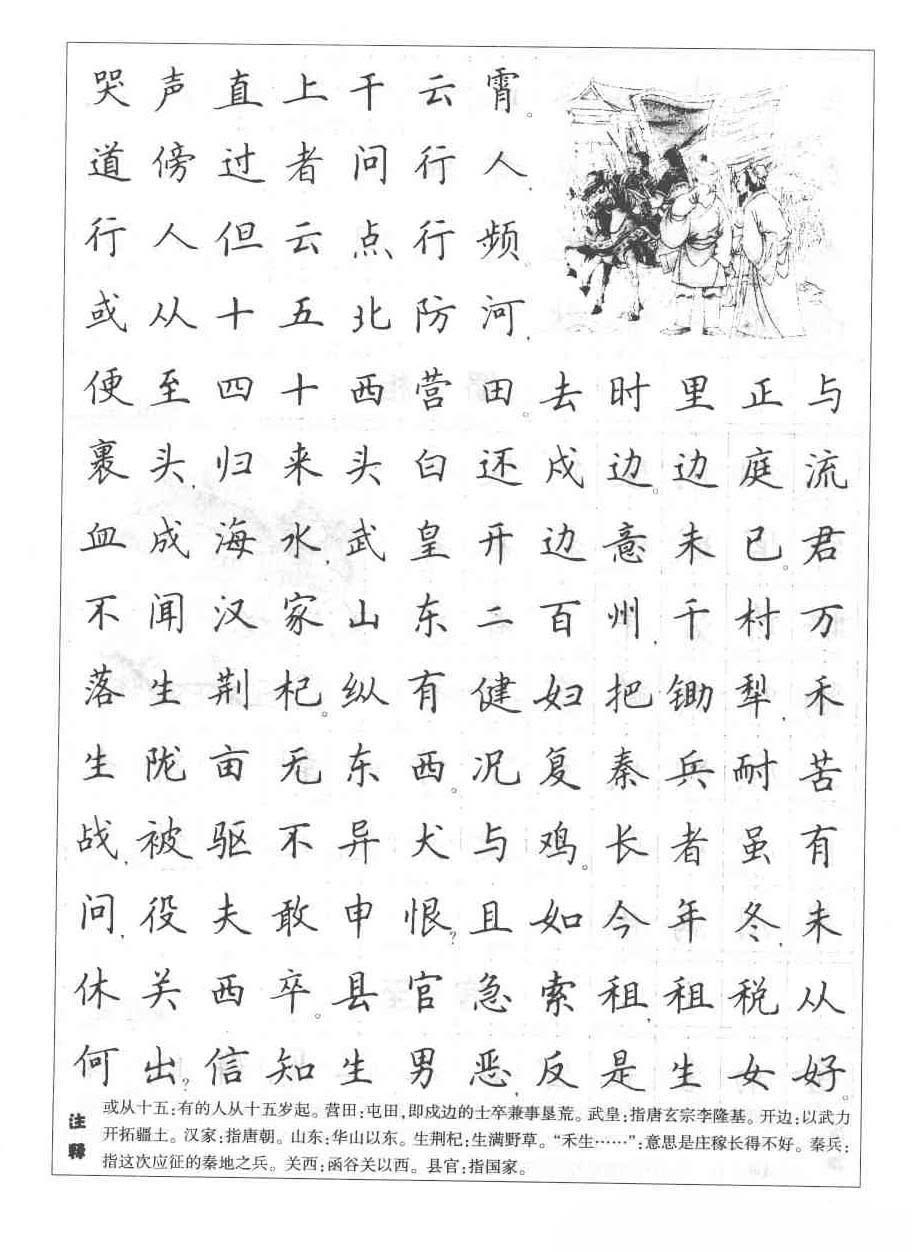 哭声直上干云霄。
道傍过者问行人,
行人但云点行频。
或从十五北防河,
便至四十西营田。去时里正与
裹头,归来头白还戍边。边庭流
血成海水,武皇开边意未已。君
不闻汉家山东二百州,千村万
落生荆杞。纵有健妇把锄犁,禾
生陇亩无东西。况复秦兵耐苦
战,被驱不异犬与鸡。长者虽有
问,役夫敢申恨?且如今年冬,未
休关西卒。县官急索租,租税从
何出?信知生男恶,反是生女好。
注释
或从十五:有的人从十五岁起。营田:屯田,即戍边的士卒兼事垦荒。武皇:指唐玄宗李隆基。开边:以武力
开拓疆土。汉家:指唐朝。山东:华山以东。生荆杞:生满野草。“禾生……”:意思是庄稼长得不好。秦兵:
指这次应征的秦地之兵。关西:函谷关以西。县官:指国家。